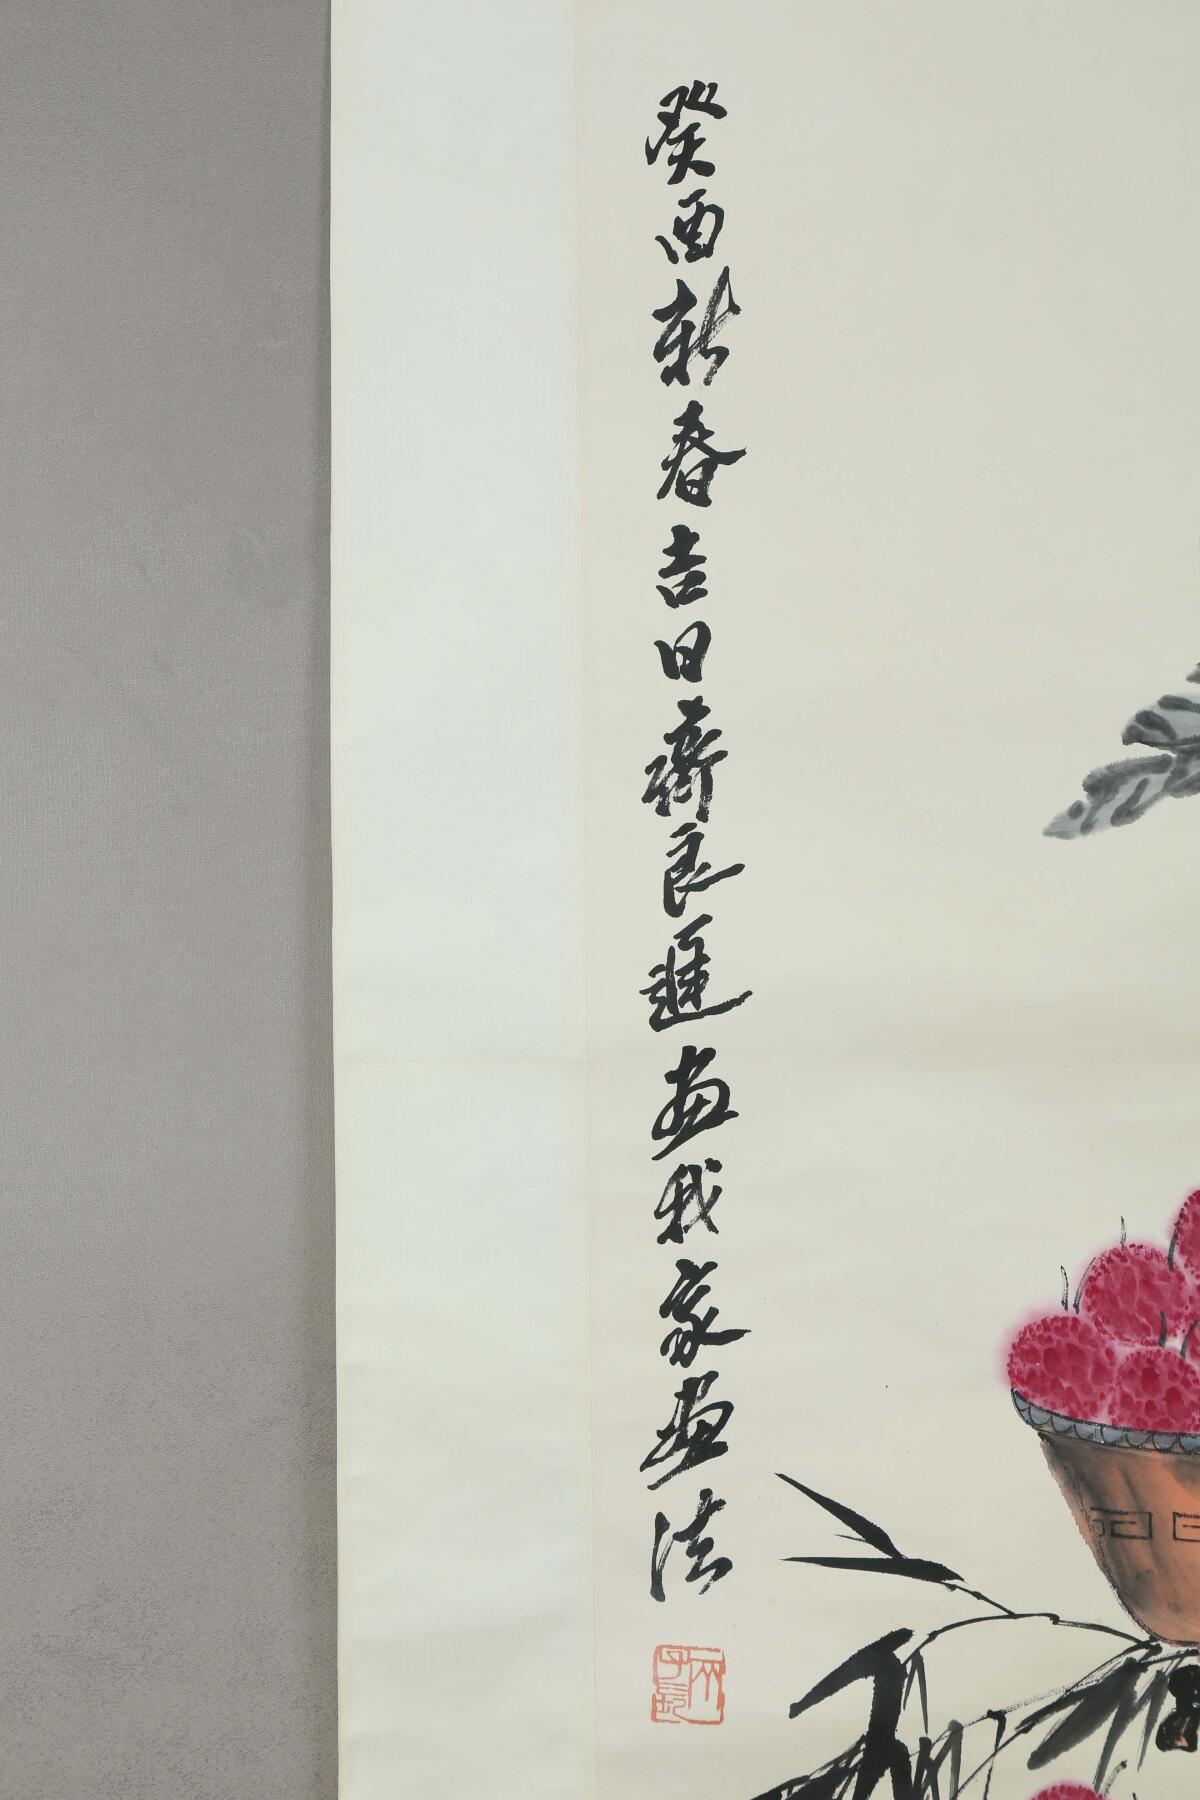 癸酉新春吉日齊良遲画我家画法